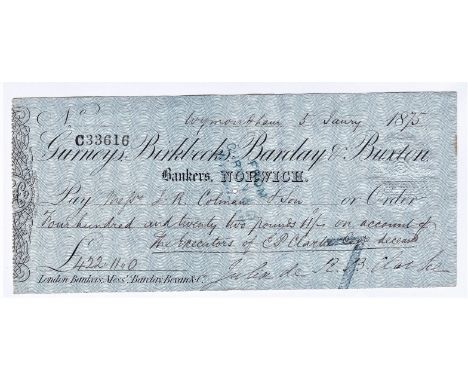 No
Wymondham 5 Janry 1875
C33616
Gurneys, Birkbecks, Barclay & Buxton,
Bankers, NORWICH.
Pay Messrs L. R. Colman & Son or Order
Four hundred and twenty two pounds 11/0 on account of
the Executors of C B Clarke deceased
£422-11-0
R. B. Clarke
London Bankers, Messrs. Barclay, Bevan & Co.